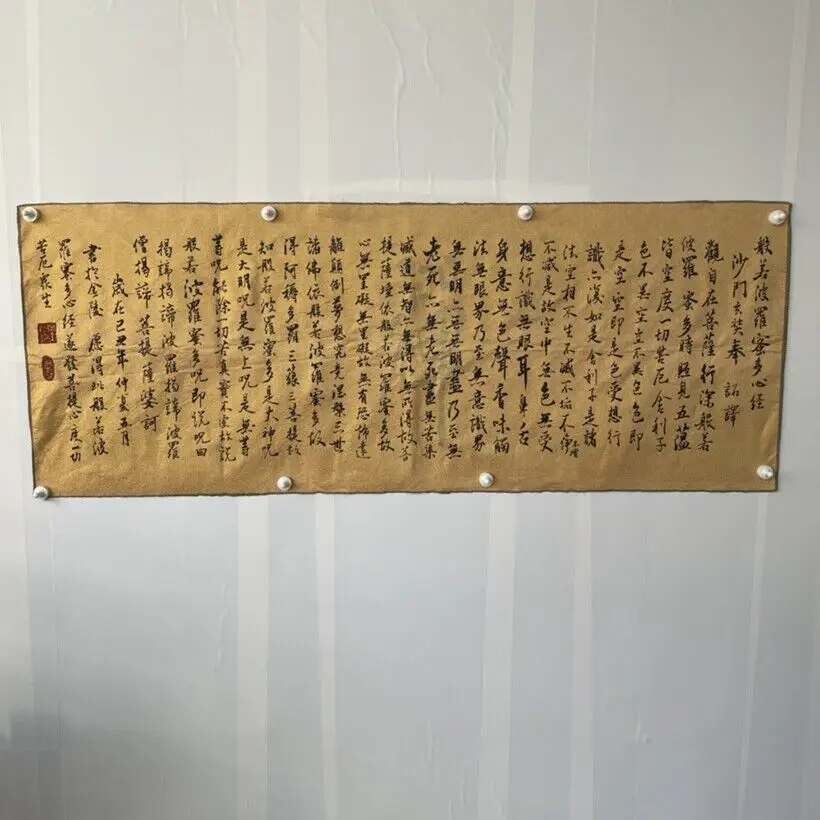 般若波羅蜜多心經
沙門玄奘奉 詔譯
觀自在菩薩行深般若
波羅蜜多時照見五蘊
皆空度一切苦厄舍利子
色不異空空不異色色即
是空空即是色受想行
識亦復如是舍利子是諸
法空相不生不滅不垢不淨不增
不減是故空中無色無受
想行識無眼耳鼻舌
身意無色聲香味觸
法無眼界乃至無意識界
無無明亦無無明盡乃至無
老死亦無老死盡無苦集
滅道無智亦無得以無所得故菩
提薩埵依般若波羅蜜多故
心無罣礙無罣礙故無有恐怖遠
離顛倒夢想究竟涅槃三世
諸佛依般若波羅蜜多故
得阿耨多羅三藐三菩提故
知般若波羅蜜多是大神咒
是大明咒是無上咒是無等
等咒能除一切苦真實不虛故說
般若波羅蜜多咒即說咒曰
揭諦揭諦波羅揭諦波羅
僧揭諦菩提薩婆訶
歲在己丑年仲夏五月
書於金陵 願得此般若波
羅蜜多心經遂發菩提心度一切
苦厄眾生